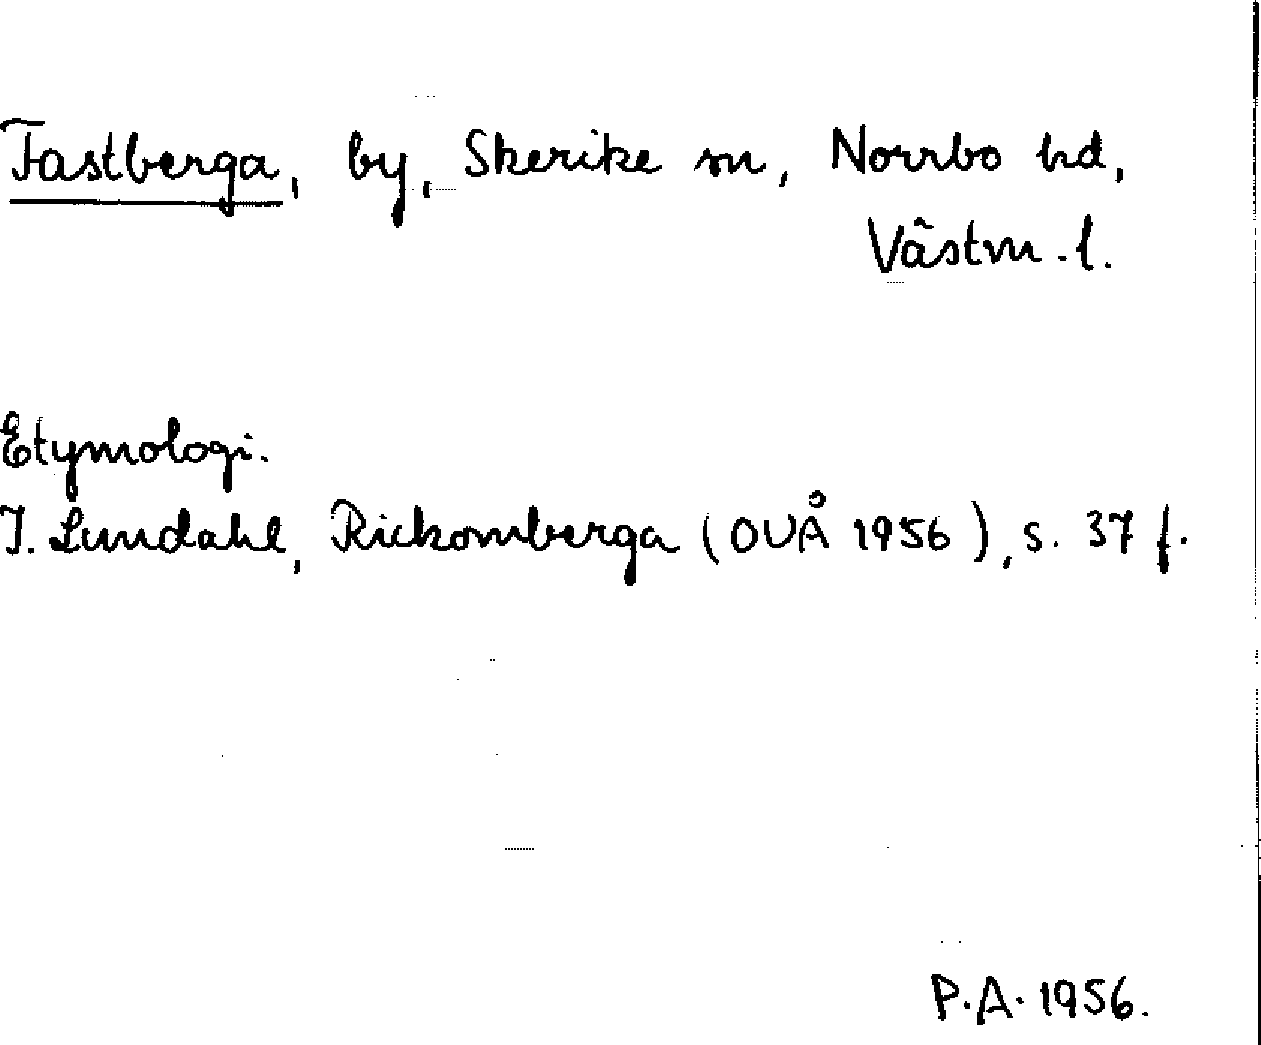 Fastberga, by, Skerike sn, Norrbo hd,
Västm. l.
Etymologi.
I. Lundahl, Rickomberga (OUÅ 1956), s. 37 f.
P.A. 1956.